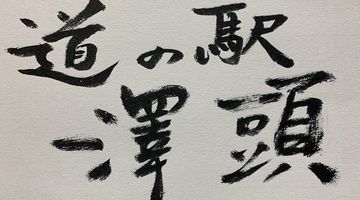 道の駅
澤頭